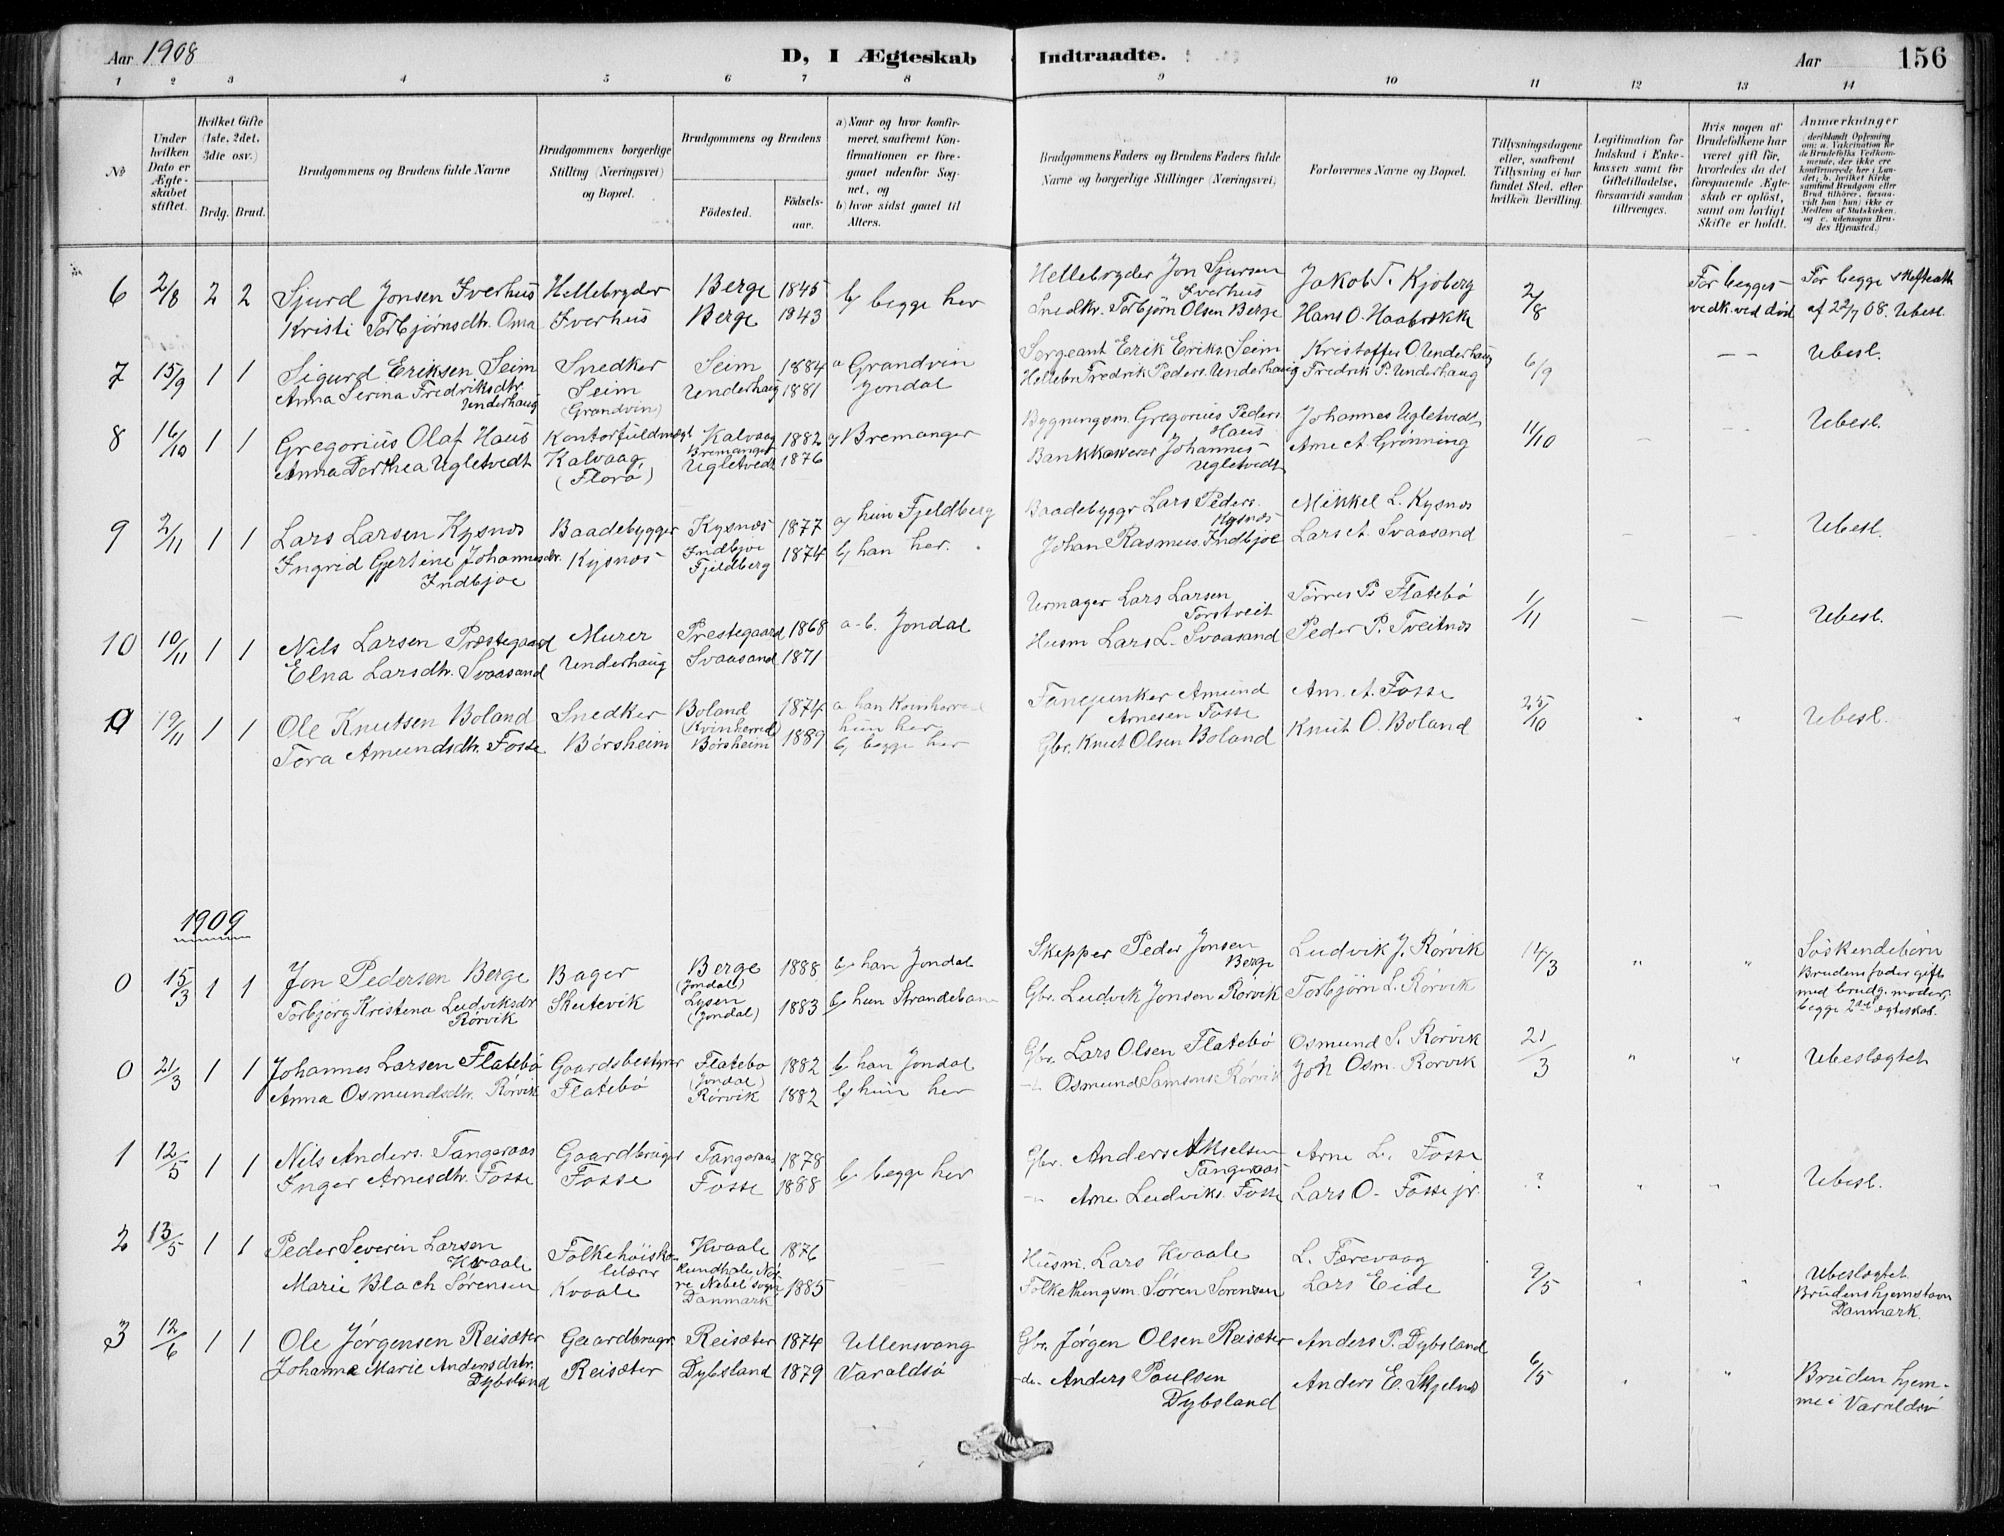 Aar 1908
D, I Ægteskab Indtraadte.
Aar
156
1 2 3 4 5 6 7 8 9 10 11 12 13 14
No
Under hvilken Dato er Ægteskabet stiftet.
Hvilket Gifte (1ste, 2det, 3die osv.)
Brdg. Brud.
Brudgommens og Brudens fulde Navne
Brudgommens borgerlige Stilling (Næringsvei) og Bopæl.
Brudgommens og Brudens
Födested.
Födselsaar.
a) Naar og hvor konfirmeret, saafremt Konfirmationen er foregaaet udenfor Sognet, og
b) hvor sidst gaaet til Alters.
Brudgommens Faders og Brudens Faders fulde Navne og borgerlige Stillinger (Næringsvei)
Forlovernes Navne og Bopæl.
Tillysningsdagene eller, saafremt Tillysning ei har fundet Sted, efter hvilken Bevilling.
Legitimation for Indskud i Enkekassen samt for Giftetilladelse, forsaavidt saadan tiltrænges.
Hvis nogen af Brudefolkene har været gift før, hvorledes da det foregaaende Ægteskab er oplöst, samt om lovligt Skifte er holdt.
Anmærkninger
(deriblandt Oplysning om: a. Vakcination for de Brudefolks Vedkommende, der ikke ere konfirmerede her i Landet; b. hvilket Kirkesamfund Brudgom eller Brud tilhörer, forsaavidt han (hun) ikke er Medlem af Statskirken, og c. udensogns Brudes Hjemsted.)
6 2/8 2 2 Sjurd Jonsen Sverhus Hellebryder Berge 1845 b/ begge her Hellebryder Jon Sjursen Sverhus Jakob T. Kjoberg 2/8 For begges For begge skifteatt.
Kristi Torbjørnsdtr. Oma Sverhus Berge 1843 Snedkr. Torbjörn Olsen Berge Hans O. Haabrække vedk. ved död af 22/7 08. Ubesl.
7 15/9 1 1 Sigurd Eriksen Seim Snedker Seim 1884 a Grandvin Sergeant Erik Eriks. Seim Kristoffer O. Underhaug 6/9 — — Ubesl.
Anna Serina Fredriksdtr. Underhaug Seim (Grandvin) Underhaug 1881 Jondal Hellebr. Fredrik Peders. Underhaug Fredrik P. Underhaug
8 16/10 1 1 Gregorius Olaf Haus Kontorfuldmægt. Kalvaag Bremanger 1882 a/ Bremanger Bygningsm. Gregorius Peders. Haus Johannes Ugletvedt 11/10 - - Ubesl.
Anna Dorthea Ugletvedt Kalvaag (Florö) Ugletvedt 1876 Bankkasserer Johannes Ugletvedt Arne A. Grönning
9 2/11 1 1 Lars Larsen Kysnes Baadebygger Kysnæs 1877 a/ hun Fjeldberg Baadebyggr Lars Peders. Kysnæs Mikkel L. Kysnæs Ubesl.
Ingrid Gjertine Johannesdtr. Indbjoe Kysnæs Indbjoe Fjeldberg 1874 b/ han her. Johan Rasmus. Indbjoe Lars A. Svaasand - -
10 10/11 1 1 Nils Larsen Præstegaard Murer Prestegaard 1868 a-b. Jondal Urmager Lars Larsen Torstveit Tørres Ps Flatebö 1/11 - - Ubesl.
Elna Larsdtr. Svaasand Underhaug Svaasand 1871 Husm Lars L. Svaasand Peder P. Tveitnes
0 19/11 1 1 Ole Knutsen Boland Snedker Boland (Kvinherred) 1874 a han Kvinherred hun her Fanejunker Amund Arnesen Fosse Am. A. Fosse 25/10 " " Ubesl.
Tora Amundsdtr. Fosse Börsheim Börsheim 1889 b/ begge her Gbr. Knut Olsen Boland Knut O. Boland
1909
0 15/3 1 1 Jon Pedersen Berge Bager Berge (Jondal) 1888 b han Jondal Skepper Peder Jonsen Berge Ludvik J. Rörvik 14/3 " " Söskendebörn
Torbjörg Kristena Ludviksdtr Rörvik Skutevik Lysen (Jondal) 1883 b hun Strandebarm Gbr. Ludvik Jonsen Rörvik Torbjörn L. Rörvik Brudens fader gift med brudg. moder, begge 2det ægteskab.
0 21/3 1 1 Johannes Larsen Flatebö Gaardsbestyrer Flatebö (Jondal) 1882 b han Jondal Gbr. Lars Olsen Flatebö Osmund S. Rörvik 21/3 " " Ubeslægtet
Anna Osmundsdtr. Rörvik Flatebö Rörvik 1882 b/ hun her -"- Osmund Samsons. Rörvik Joh Osm. Rörvik
1 12/5 1 1 Nils Anders. Tangeraas Gaardbruger Tangeraas 1878 b begge her Gbr. Anders Akselsen Tangeraas Arne L. Fosse ? " " Ubesl.
Inger Arnesdtr. Fosse Fosse Fosse 1888 -"- Arne Ludviks. Fosse Lars O. Fosse jr.
2 13/5 1 1 Peder Severin Larsen Kvaale Folkehöiskolelærer Kvaale 1876 Husm. Lars Kvaale L. Færevaag 9/5 " " Ubeslægtet.
Marie Blach Sörensen Kvaale Danmark 1885 Folkethingsm. Sören Sörensen Lars Eide Brudens hjemstavn Danmark.
3 12/6 1 1 Ole Jørgensen Reisæter Gaardbrugr. Reisæter 1874 Ullensvang Gbr. Jørgen Olsen Reisæter Anders P. Dybsland 6/5 " "
Johanna Marie Andersdatr. Dybsland Reisæter Dybsland 1879 Varaldsö -do- Anders Poulsen Dybsland Anders E. Skjelnes Bruden hjemme i Varaldsö